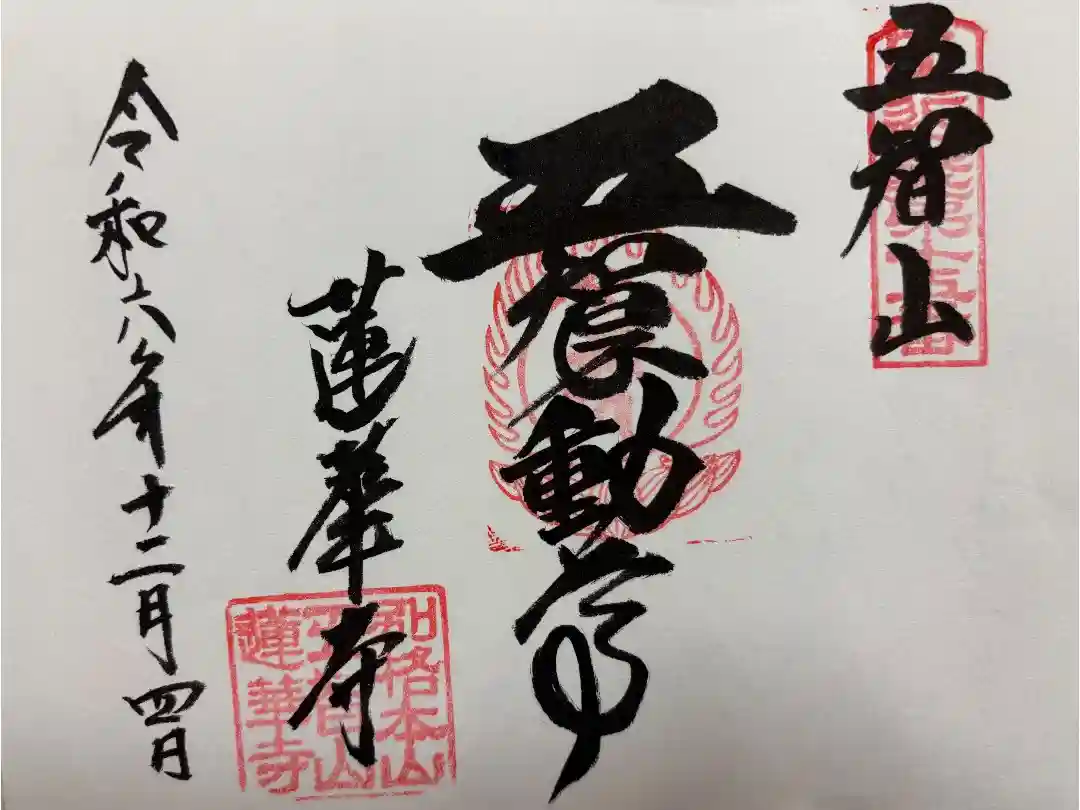 五智山
第十五番
五智不動尊
蓮華寺
別格本山
五智山
蓮華寺
令和六年十二月四日